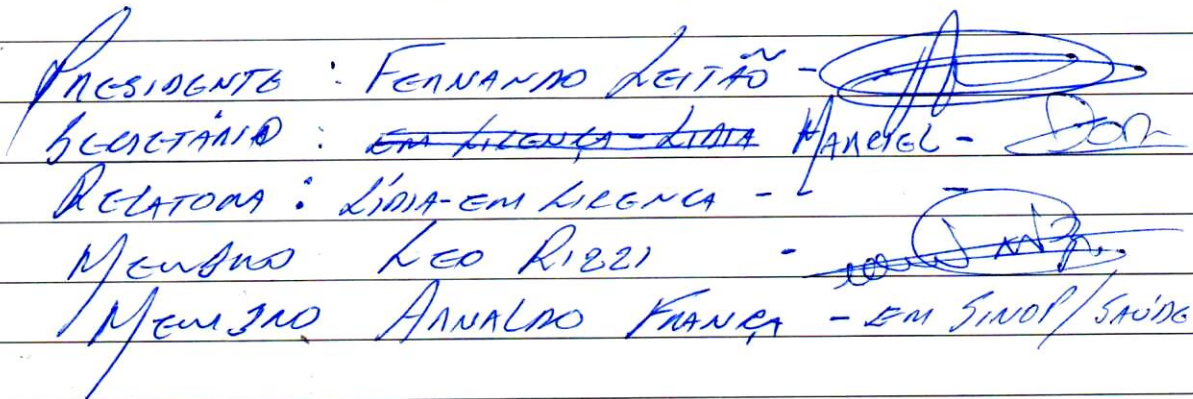 PRESIDENTE : FERNANDO LEITÃO -
SECRETÁRIO : EM LICENÇA - LIDIA MARCIEL -
RELATORA : LÍDIA - EM LICENÇA -
MEMBRO LEO RIZZI -
MEMBRO ARNALDO FRANÇA - EM SINOP/SAÚDE